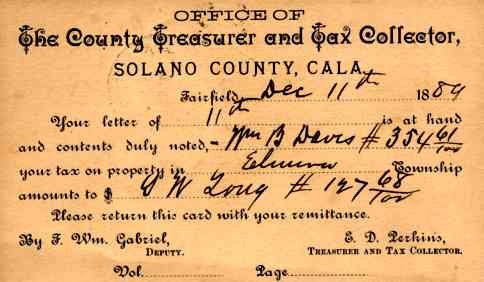 OFFICE OF
The County Treasurer and Tax Collector,
SOLANO COUNTY, CALA.
Fairfield, Dec 11th 1889
Your letter of 11th is at hand
and contents duly noted,- Wm B Davis # 354 61/100
your tax on property in Elmira Township
amounts to $ S W Long # 127 68/100
Please return this card with your remittance.
By F. Wm. Gabriel, E. D. Perkins,
DEPUTY. TREASURER AND TAX COLLECTOR.
Vol. Page